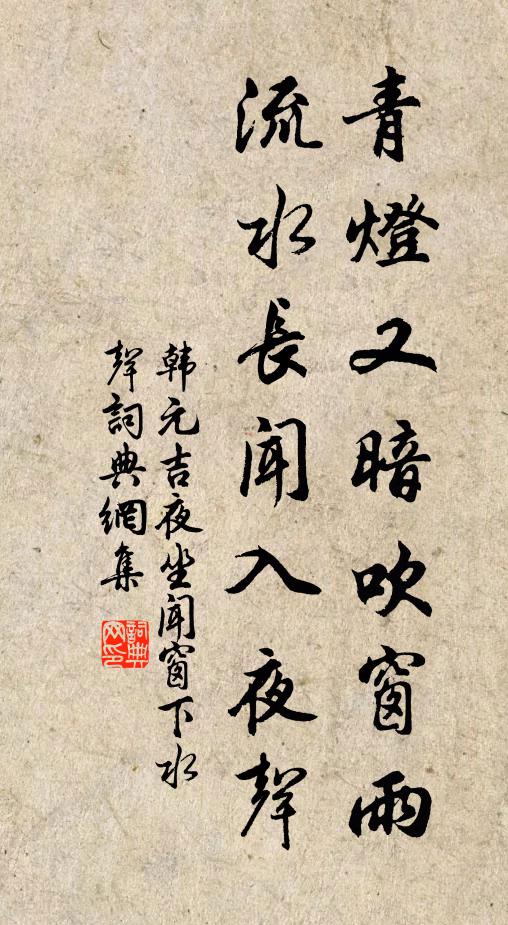 青燈又暗吹窗雨
流水長聞入夜聲
韩元吉夜坐聞窗下水
聲詞典網集
詞典
网印